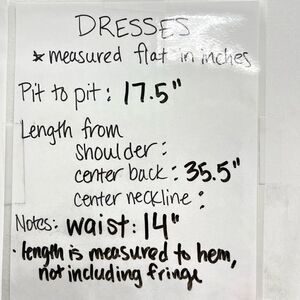 DRESSES
* measured flat in inches
Pit to pit: 17.5"
Length from
shoulder:
center back: 35.5"
center neckline:
Notes: waist: 14"
• length is measured to hem,
not including fringe